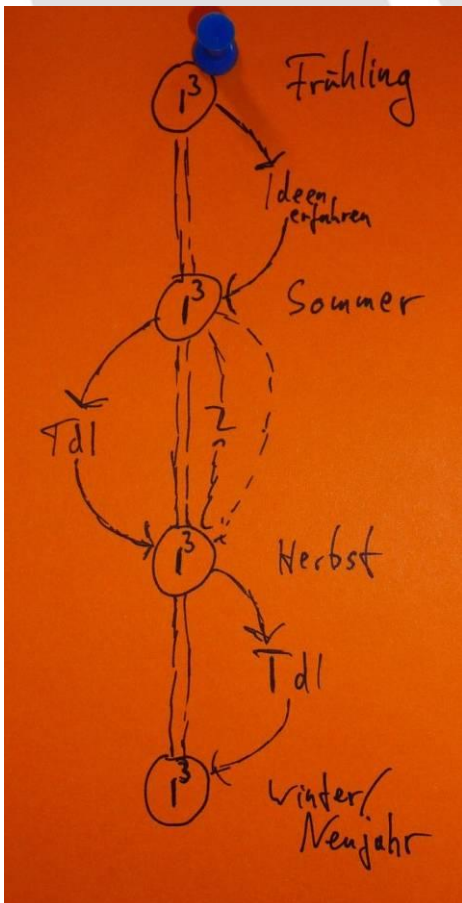 I³
Frühling
Ideen
erfahren
I³
Sommer
TdI
2
I³
Herbst
TdI
I³
Winter/
Neujahr